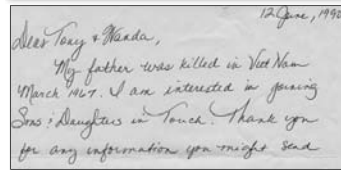 12 June, 1990
Dear Tony & Wanda,
My father was killed in Viet Nam
March 1967. I am interested in joining
Sons & Daughters in Touch. Thank you
for any information you might send